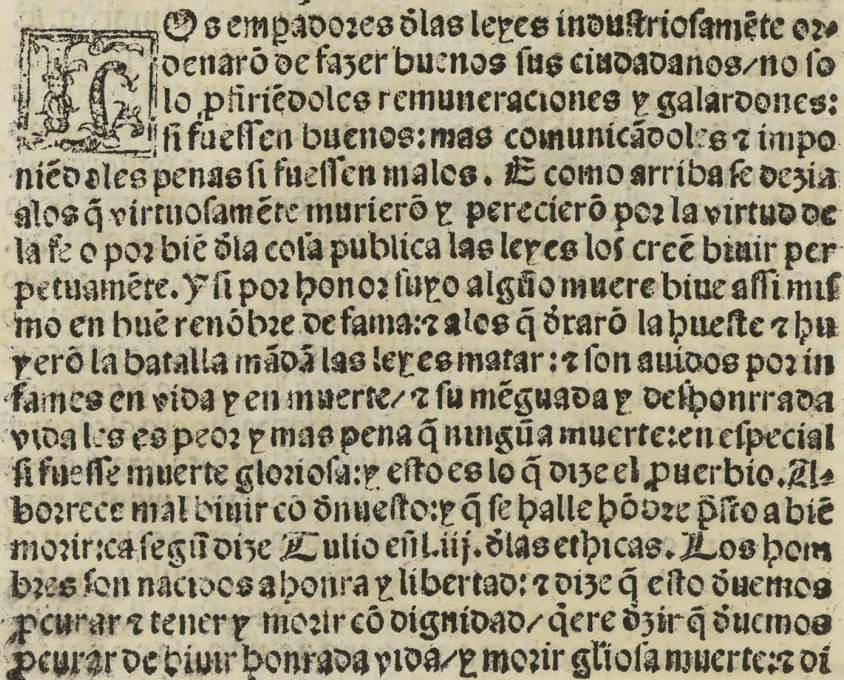 LOs empadores ðlas leyes industriosamẽte or⸗
denarõ de fazer buenos sus ciudadanos/no so
lo ꝓfiriẽdoles remuneraciones y galardones:
si fuessen buenos: mas comunicãdoles ⁊ impo
niẽdoles penas si fuessen malos. E como arriba se dezia
alos q̃ virtuosamẽte murierõ y perecierõ por la virtud de
la fe o por biẽ ðla cosa publica las leyes los creẽ biuir per
petuamẽte. Y si por honor suyo algũo muere biue assi mis
mo en buẽ renõbre de fama: ⁊ alos q̃ ðrarõ la hueste ⁊ hu
yerõ la batalla mãdã las leyes matar: ⁊ son auidos por in
fames en vida y en muerte/ ⁊ su mẽguada y deshonrrada
vida les es peor y mas pena q̃ ningũa muerte: en especial
si fuesse muerte gloriosa: y esto es lo q̃ dize el ꝓuerbio. Al⸗
borrece mal biuir cõ ðnuesto: y q̃ se halle hõbre p̃sto a biẽ
morir: ca segũ dize Tulio eñl.iij. ðlas ethicas. Los hom
bres son nacidos a honra y libertad: ⁊ dize q̃ esto ðuemos
ꝓcurar ⁊ tener y morir cõ dignidad/ q̃ere ðzir q̃ ðuemos
ꝓcurar de biuir honrada vida/ y morir gl̃iosa muerte: ⁊ di